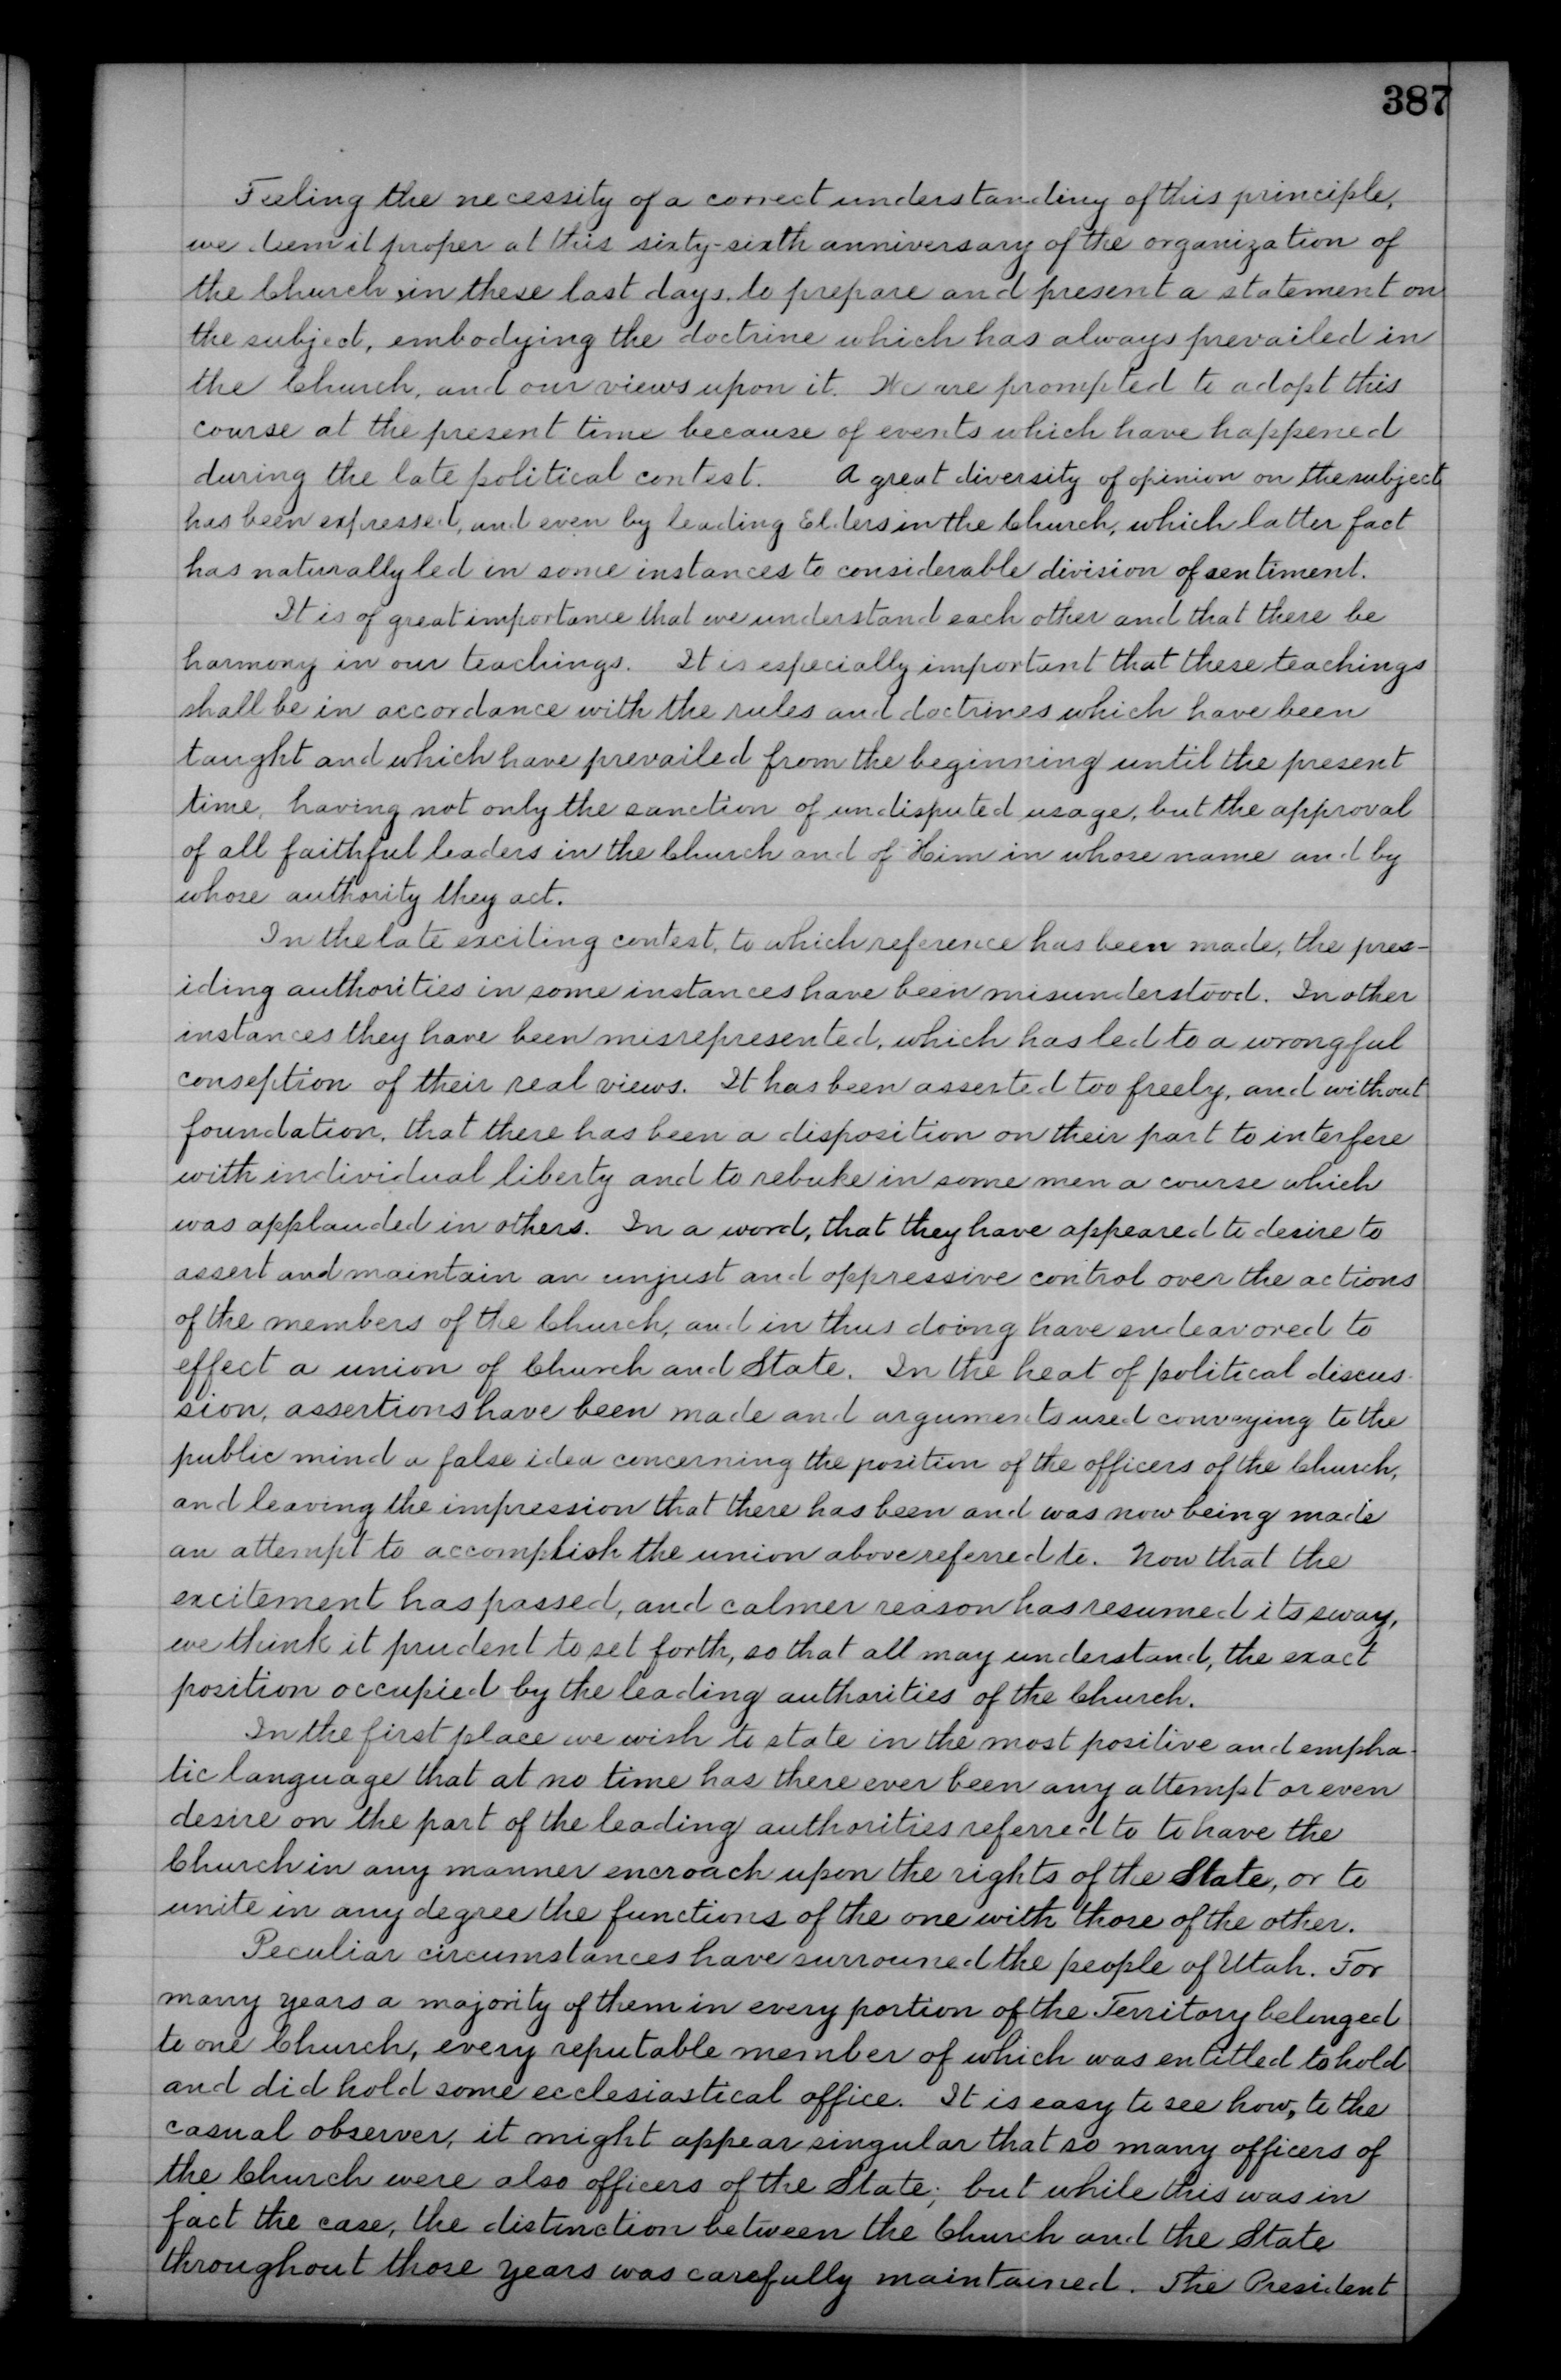 387
Feeling the necessity of a correct understanding of this principle,
we deem it proper at this sixty-sixth anniversary of the organization of
the Church, in these last days, to prepare and present a statement on
the subject, embodying the doctrine which has always prevailed in
the Church, and our views upon it. We are prompted to adopt this
course at the present time because of events which have happened
during the late political contest. A great diversity of opinion on the subject
has been expressed, and even by leading Elders in the Church, which latter fact
has naturally led in some instances to considerable division of sentiment.
It is of great importance that we understand each other and that there be
harmony in our teachings. It is especially important that these teachings
shall be in accordance with the rules and doctrines which have been
taught and which have prevailed from the beginning until the present
time, having not only the sanction of undisputed usage, but the approval
of all faithful leaders in the Church and of Him in whose name and by
whose authority they act.
In the late exciting contest, to which reference has been made, the pres-
iding authorities in some instances have been misunderstood. In other
instances they have been misrepresented, which has led to a wrongful
conseption of their real views. It has been asserted too freely, and without
foundation, that there has been a disposition on their part to interfere
with individual liberty and to rebuke in some men a course which
was applauded in others. In a word, that they have appeared to desire to
assert and maintain an unjust and oppressive control over the actions
of the members of the Church, and in thus doing have endeavored to
effect a union of Church and State. In the heat of political discus-
sion, assertions have been made and arguments used conveying to the
public mind a false idea concerning the position of the officers of the Church,
and leaving the impression that there has been and was now being made
an attempt to accomplish the union above referred to. Now that the
excitement has passed, and calmer reason has resumed its sway,
we think it prudent to set forth, so that all may understand, the exact
position occupied by the leading authorities of the Church.
In the first place we wish to state in the most positive and empha-
tic language that at no time has there ever been any attempt or even
desire on the part of the leading authorities referred to to have the
Church in any manner encroach upon the rights of the State, or to
unite in any degree the functions of the one with those of the other.
Peculiar circumstances have surrouned the people of Utah. For
many years a majority of them in every portion of the Territory belonged
to one Church, every reputable member of which was entitled to hold
and did hold some ecclesiastical office. It is easy to see how, to the
casual observer, it might appear singular that so many officers of
the Church were also officers of the State; but while this was in
fact the case, the distinction between the Church and the State
throughout those years was carefully maintained. The President